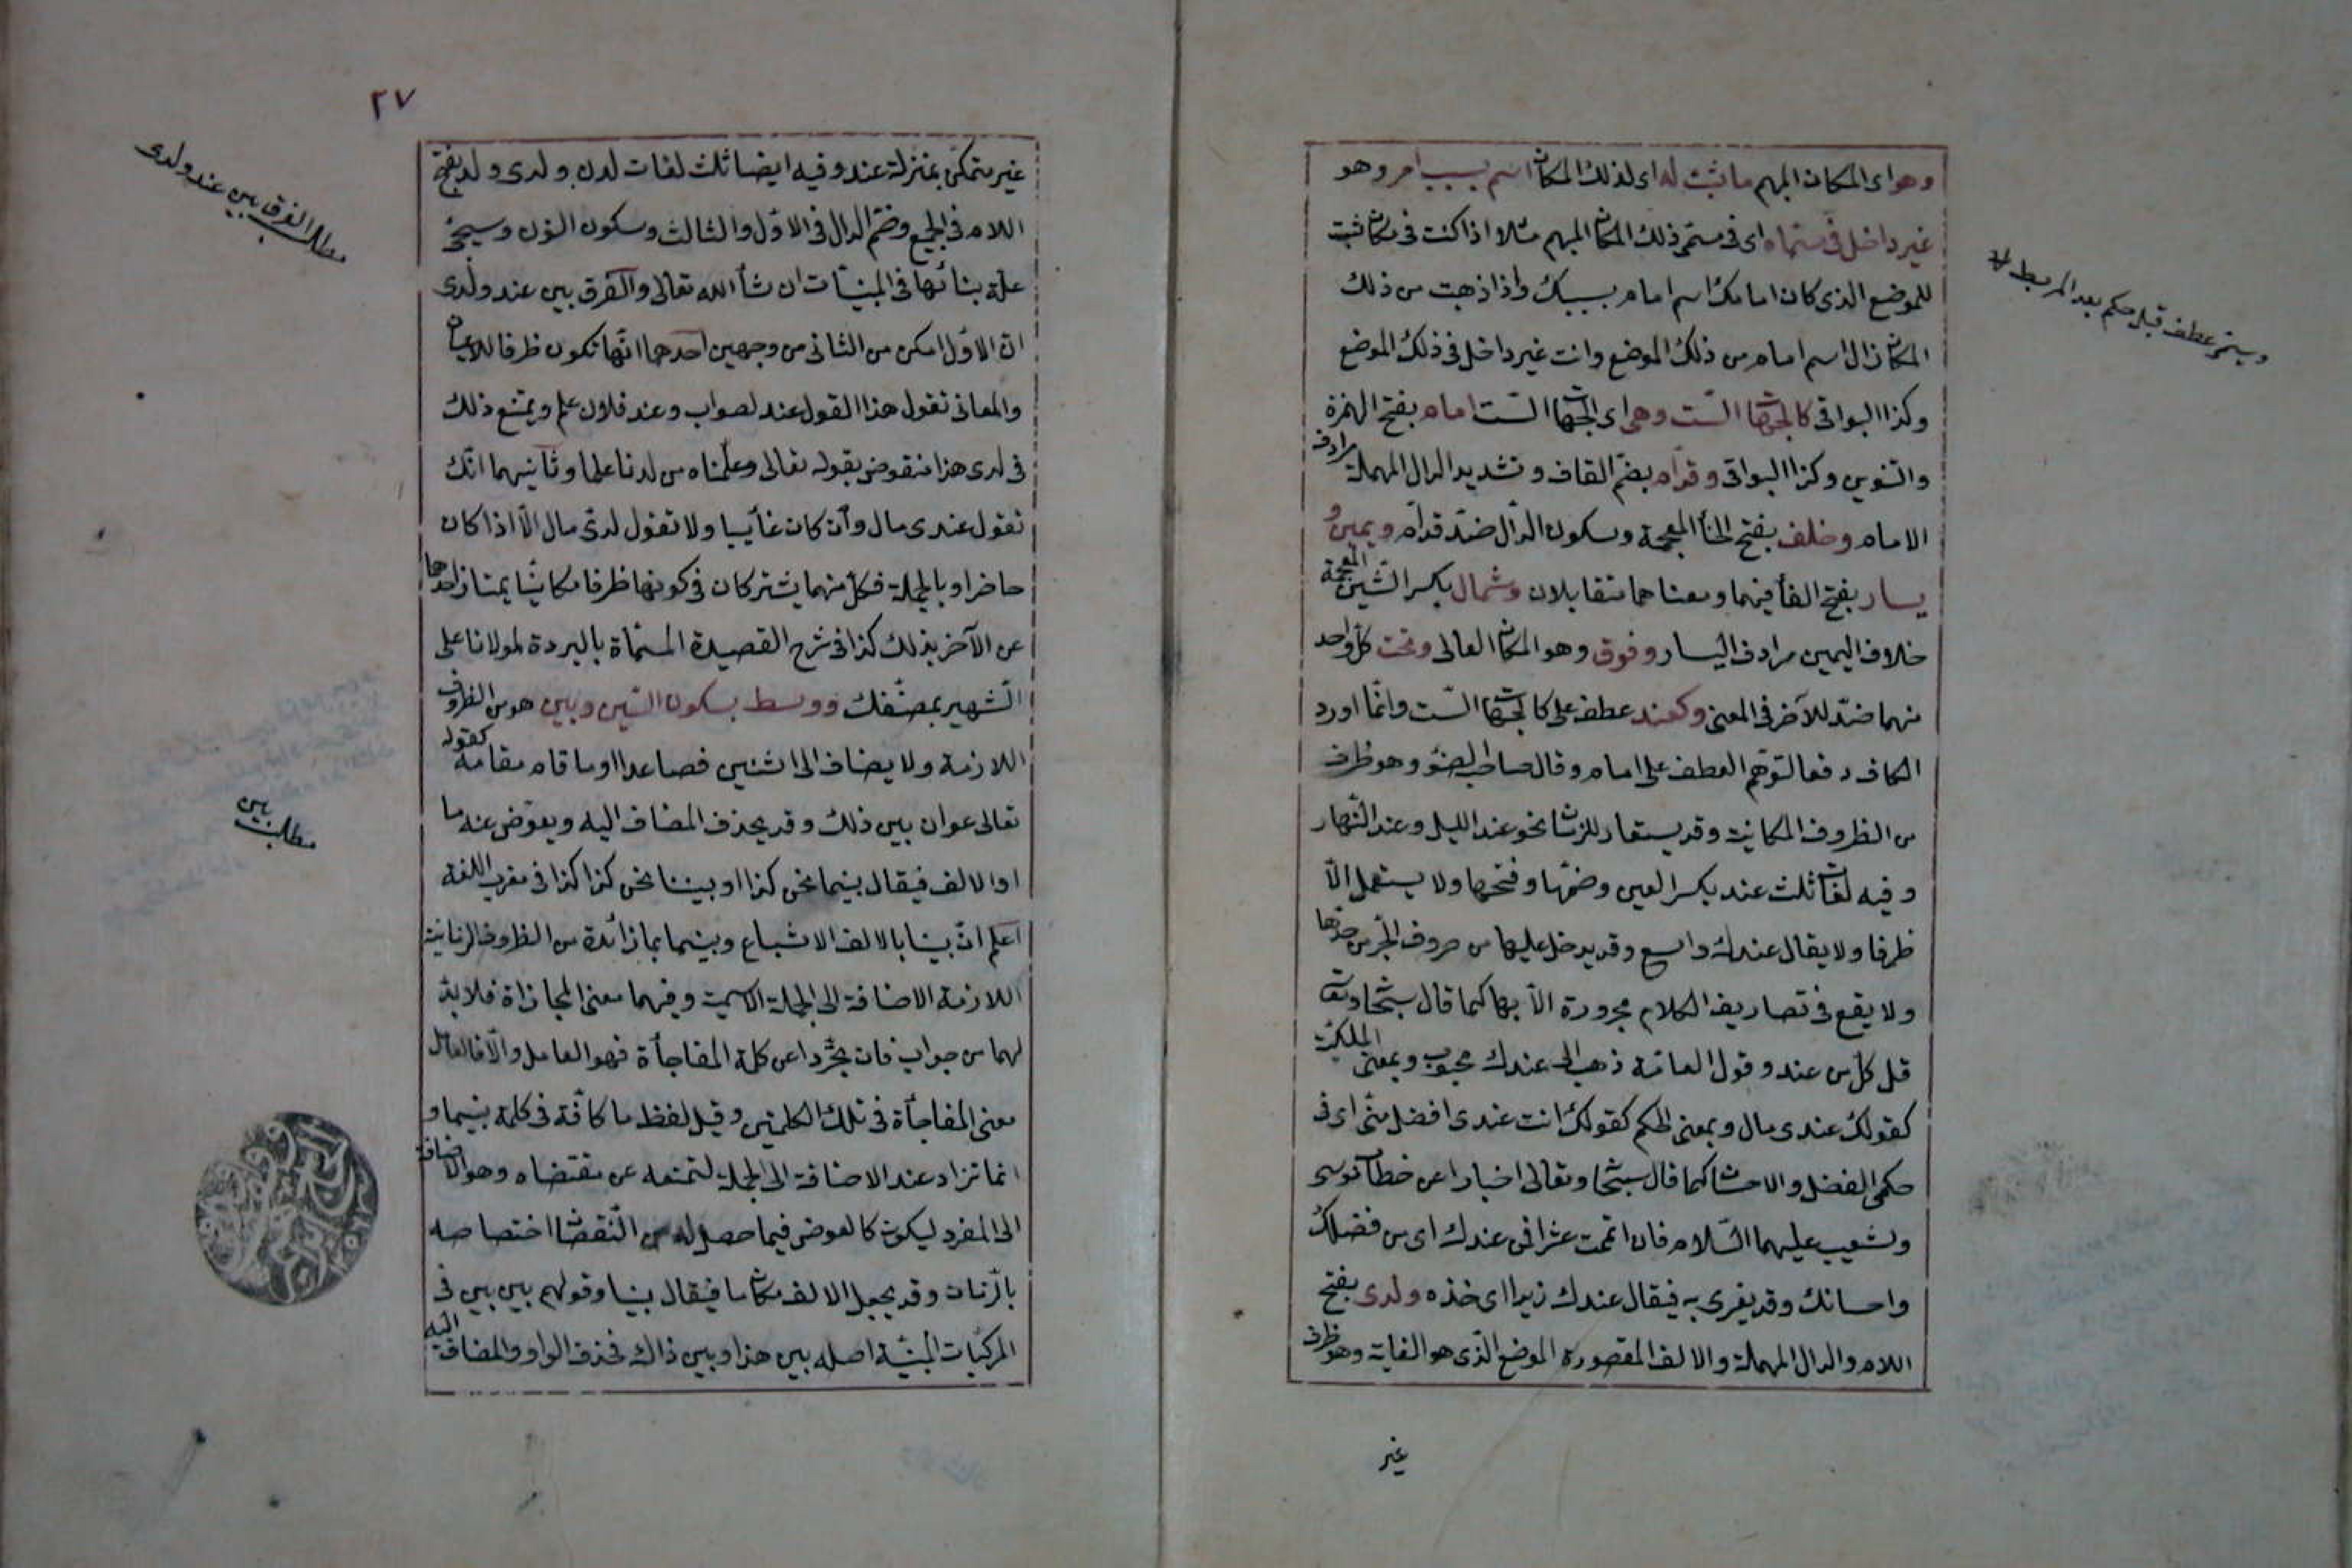 وهو اى المكان المبهم ما ثبت له اى لذلك المكان اسم بسبب امر وهو
غير داخل فى مسماه اى فى مسمى ذلك المكان المبهم مثلا اذا كنت فى مكان ثبت
للموضع الذى كان امامك اسم امام بسببك واذا ذهبت من ذلك
المكان زال اسم امام من ذلك الموضع وانت غير داخل فى ذلك الموضع
وكذا البواقى كالجهات الست وهى اى الجهات الست امام بفتح الهمزة
والتنوين وكذا البواقى وقدام بضم القاف وتشديد الدال المهملة مرادف
الامام وخلف بفتح الخاء المعجمة وسكون الدال ضد قدام ويمين و
يسار بفتح الفاء فيهما ومعناهما متقابلان وشمال بكسر الشين المعجمة
خلاف اليمين مرادف اليسار وفوق وهو المكان العالى وتحت كل واحد
منهما ضد للآخر فى المعنى وكعند عطف على كالجهات الست وانما اورد
الكاف دفعا لتوهم العطف على امام وقال صاحب الضوء وهو ظرف
من الظروف المكانية وقد يستعار للزمان نحو عند الليل وعند النهار
وفيه لغات ثلث عند بكسر العين وضمها وفتحها ولا يستعمل الا
ظرفا ولا يقال عندك واسع وقد يدخل عليها من حروف الجر من وحدها
ولا يقع فى تصاريف الكلام مجرورة الا بها كما قال سبحانه وتعالى
قل كل من عند وقول العامة ذهب الى عندك وبمعنى الملكية
كقولك عندى مال وبمعنى الحكم كقولك انت عندى افضل منى اى فى
حكمى الفضل والاحسان كما قال سبحانه وتعالى اخبارا عن خطاب موسى
وشعيب عليهما السلام فان اتممت عشرا فمن عندك اى من فضلك
واحسانك وقد يغرى به فيقال عندك زيدا اى خذه ولدى بفتح
اللام والدال المهملة والالف المقصورة الموضع الذى هو الغاية وهو ظرف
غير
ويسمى عطف قبل حكم بعد الربط
٢٧
غير متمكن بمنزلة عند وفيه ايضا ثلث لغات لدن ولدى ولد بفتح
اللام فى الجميع وضم الدال فى الاول والثالث وسكون النون وسيجئ
علة بنائها فى المبنيات ان شاء الله تعالى والفرق بين عند ولدى
ان الاول امكن من الثانى من وجهين احدهما انها تكون ظرفا للاعيان
والمعانى تقول هذا القول عند لصواب وعند فلان علم ويمتنع ذلك
فى لدى هذا منقوض بقوله تعالى وعلمناه من لدنا علما وثانيهما انك
تقول عندى مال وان كان غائبا ولا تقول لدى مال الا اذا كان
حاضرا وبالجملة فكل منهما يشتركان فى كونها ظرفا مكانيا يمتاز احدهما
عن الآخر بذلك كذا فى شرح القصيدة المسماة بالبردة لمولانا على
الشهير بمصنفك ووسط بسكون السين وبين هو من الظروف
اللازمة ولا يضاف الى اثنين فصاعدا او ما قام مقامه كقوله
تعالى عوان بين ذلك وقد يحذف المضاف اليه ويعوض عنه ما
او الالف فيقال بينما نحن كذا او بينا نحن كذا كذا فى مغرب اللغة
اعلم ان بينا بالالف الاشباع وبينما بما زائدة من الظروف الزمانية
اللازمة الاضافة الى الجملة الاسمية وفيهما معنى المجازاة فلا بد
لهما من جواب فان تجردا عن كلمة المفاجأة فهو العامل والا فالعامل
معنى المفاجأة فى تلك الكلمتين وقيل لفظ ما كافة فى كلمة بينما و
انما تزاد عند الاضافة الى الجملة لتمنعه عن مقتضاه وهو الاضافة
الى المفرد ليكون كالعوض فيما حصل له من النقصان اختصاصه
بالزمان وقد يجعل الالف مكان ما فيقال بينا وقولهم بين بين فى
المركبات المبنية اصله بين هذا وبين ذاك فحذف الواو والمضاف اليه
مطلب الفرق بين عند ولدى
مطلب بين